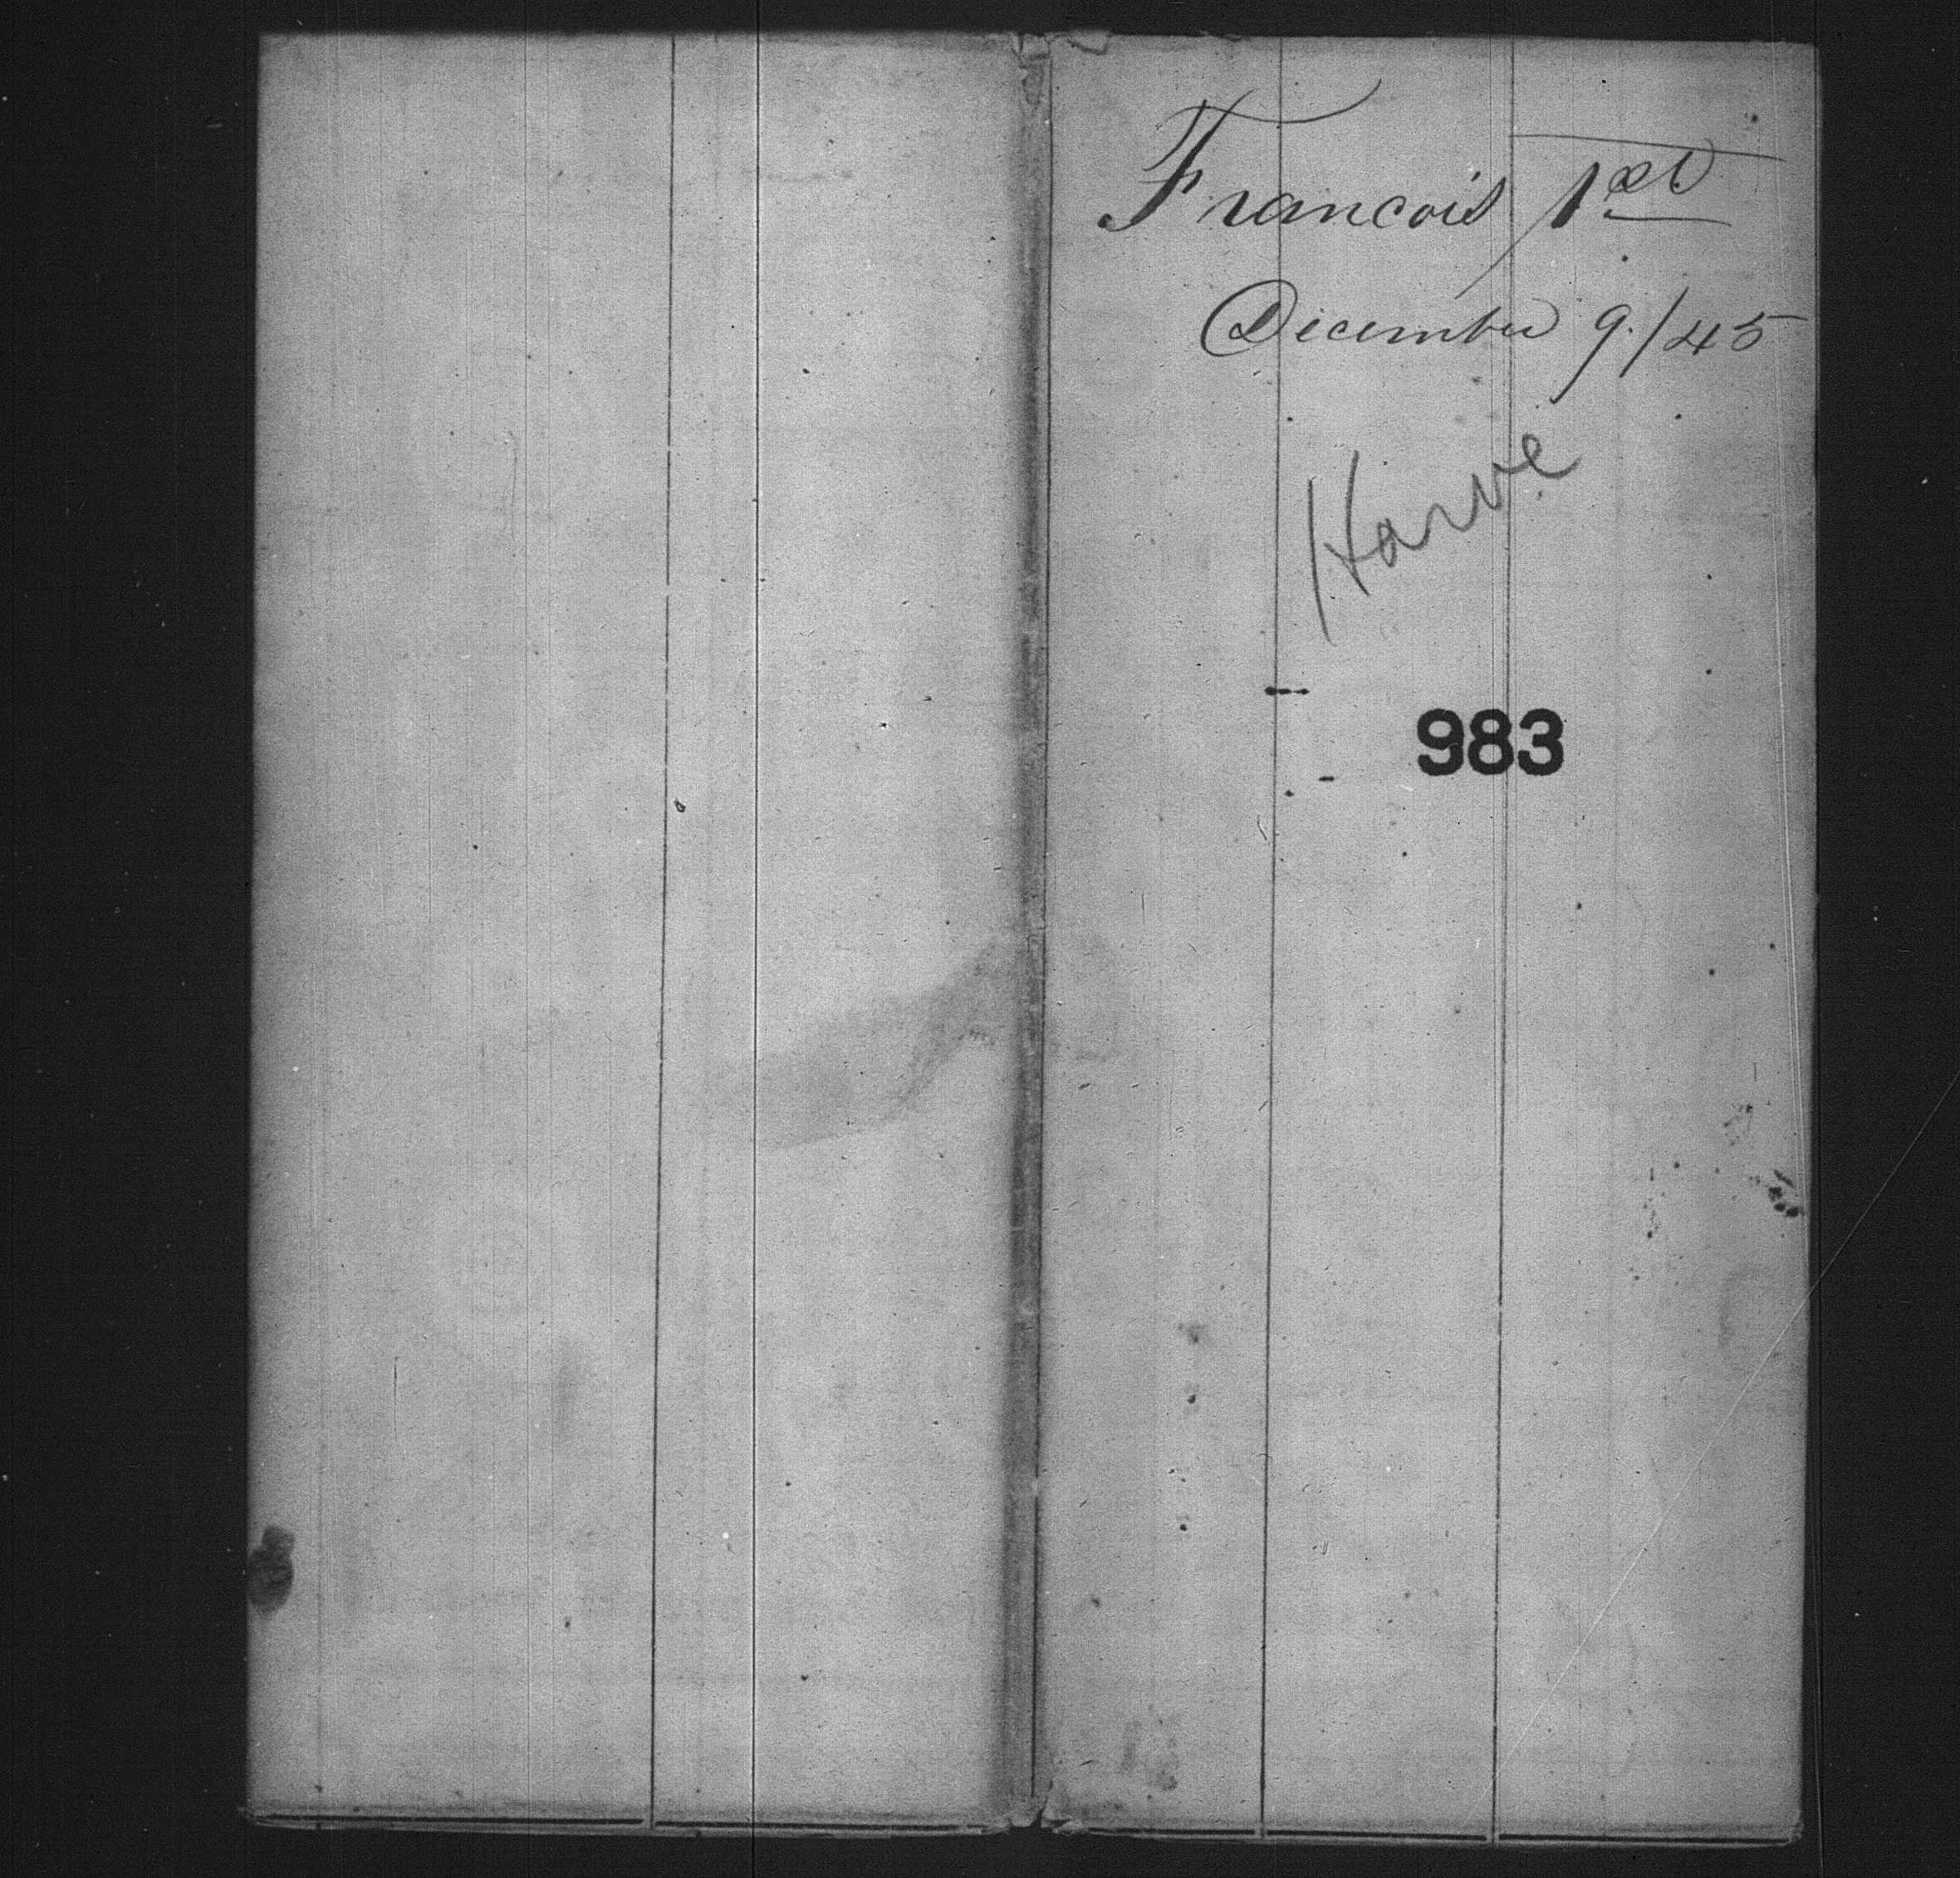 Francois 1st
December 9./45
Harve
983